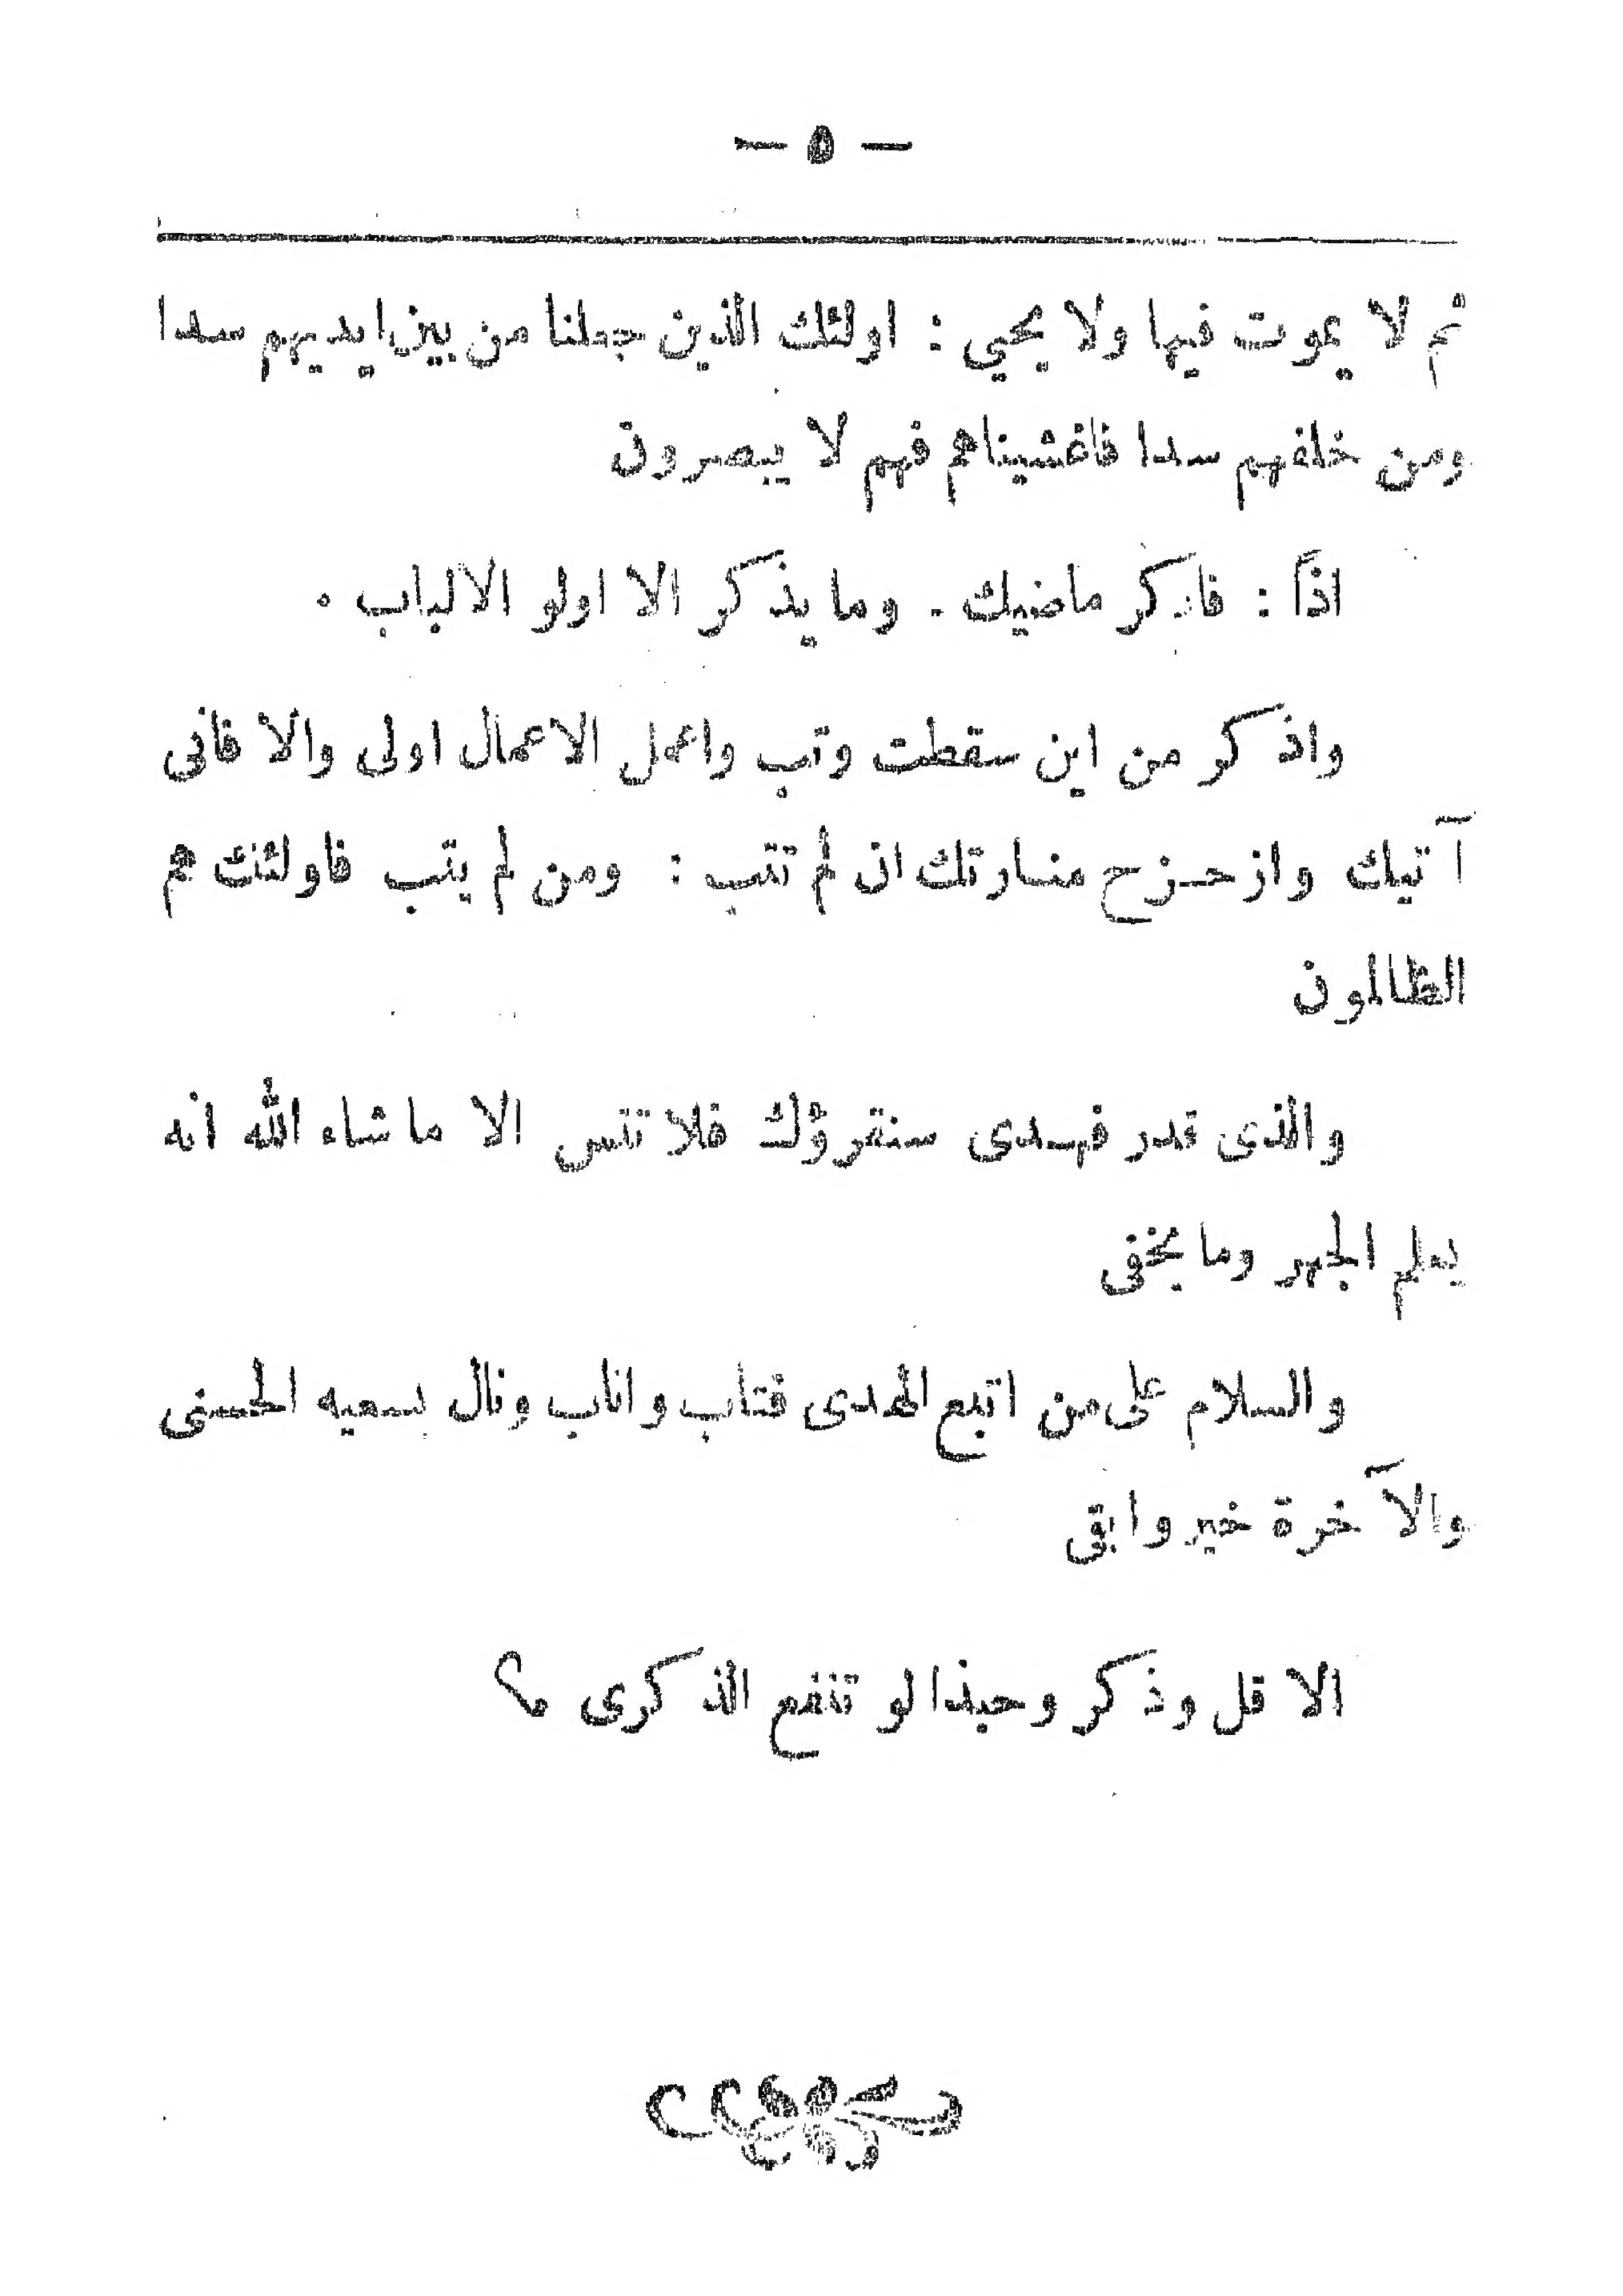 — ٥ —
ثم لا يموت فيها ولا يحيي : اولئك الذين جعلنا من بين ايديهم سدا
ومن خلفهم سدا فاغشيناهم فهم لا يبصرون
اذاً : فاذكر ماضيك . وما يذكر الا اولو الالباب .
واذكر من اين سقطت وتب واعمل الاعمال اولى والا فانى
آتيك وازحزح منارتك ان لم تتب : ومن لم يتب فاولئك هم
الظالمون
والذى قدر فهدى سنقرؤك فلا تنس الا ما شاء الله انه
يعلم الجهر وما يخفى
والسلام على من اتبع الهدى فتاب واناب ونال بسعيه الحسنى
والآخرة خير وابقى
الا قل وذكر وحبذا لو تنفع الذكرى